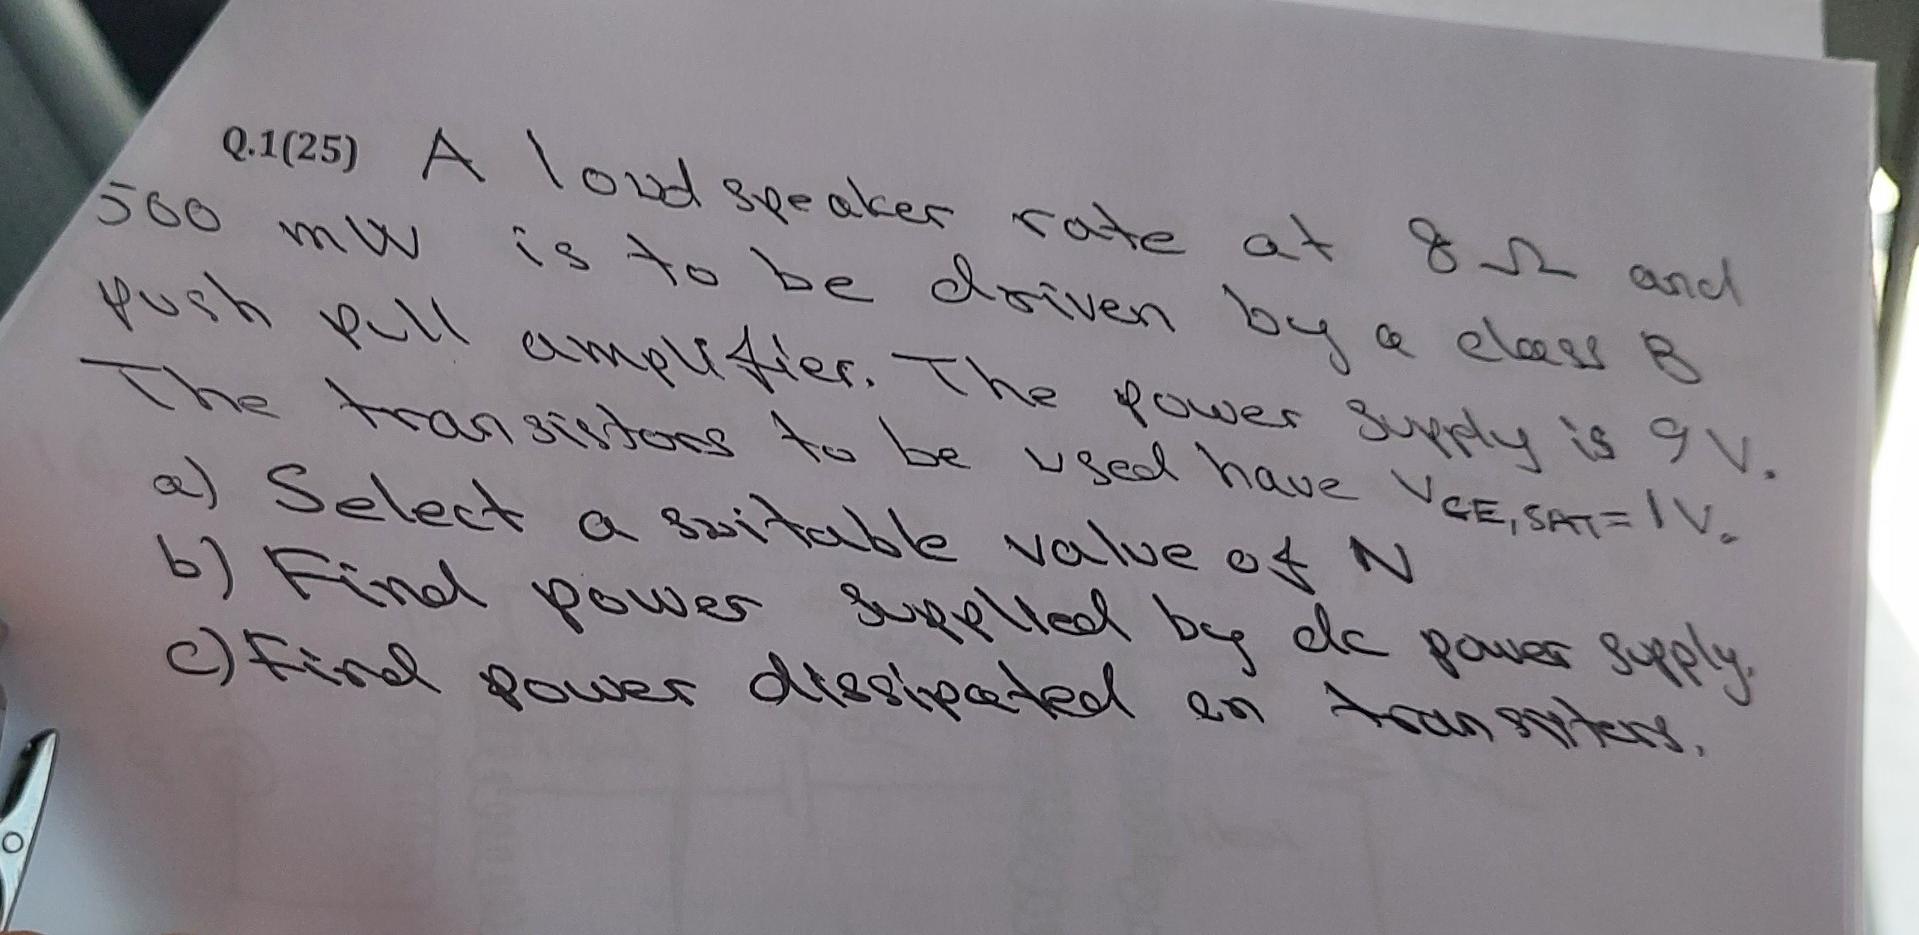 Q.1(25) A loud speaker rate at 8Ω and
500 mW is to be driven by a class B
push pull amplifier. The power supply is 9V.
The transistors to be used have VCE,SAT=1V.
a) Select a suitable value of N
b) Find power supplied by dc power supply.
c) Find power dissipated en transistors.